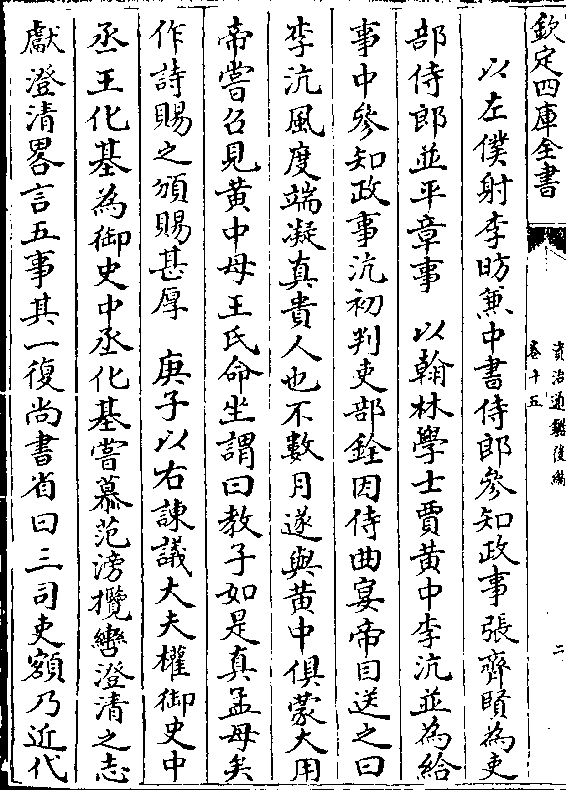 欽定四庫全書
資治通鑑後編
卷十五
二
以左僕射李昉兼中書侍郎參知政事張齊賢為吏
部侍郎並平章事　以翰林學士賈黃中李沆並為給
事中參知政事沆初判吏部銓因侍曲宴帝目送之曰
李沆風度端凝真貴人也不數月遂與黃中俱蒙大用
帝嘗召見黃中母王氏命坐謂曰教子如是真孟母矣
作詩賜之頒賜甚厚　庚子以右諫議大夫權御史中
丞王化基為御史中丞化基嘗慕范滂攬轡澄清之志
獻澄清畧言五事其一復尚書省曰三司吏額乃近代